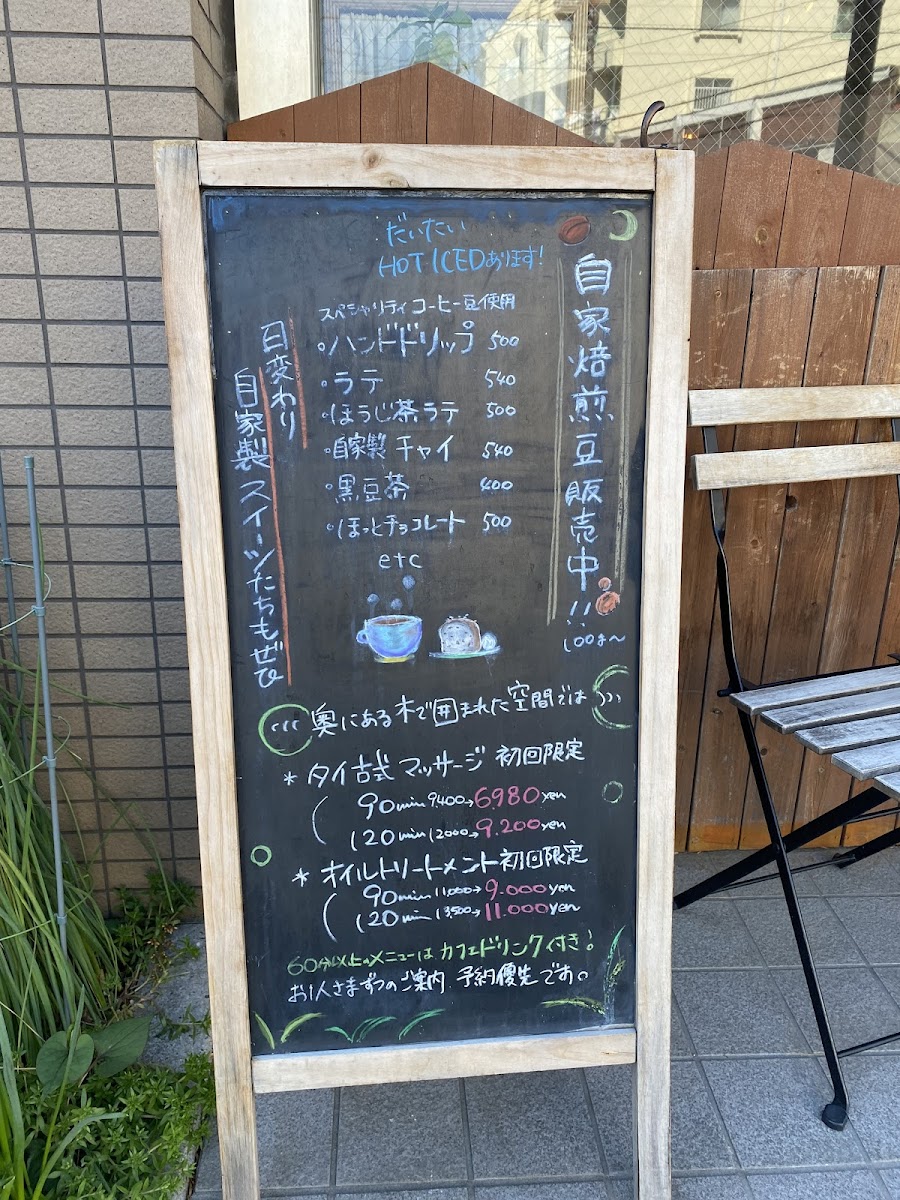 だいたい
HOT ICEDあります!
自家焙煎豆販売中!!
100g〜
スペシャリティコーヒー豆使用
・ハンドドリップ 500
・ラテ 540
・ほうじ茶ラテ 500
・自家製チャイ 540
・黒豆茶 400
・ほっとチョコレート 500
etc
日変わり
自家製スイーツたちもぜひ
奥にある木で囲まれた空間では
* タイ古式マッサージ 初回限定
90min 9400→6.980yen
120min 12000→9.200yen
* オイルトリートメント初回限定
90min 11,000→9.000yen
120min 13,500→11.000yen
60分以上のメニューはカフェドリンク付き!
お1人さまずつのご案内、予約優先です。